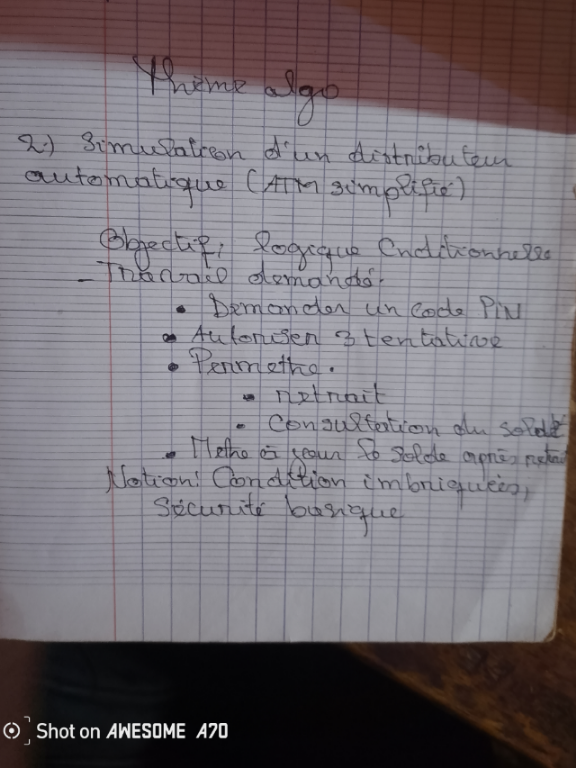 Thème algo
2.) Simulation d'un distributeur
automatique (ATM simplifié)
Objectif, logique Cnditionnelle
- Travail demandé.
• Demander un code PIN
• Autoriser 3 tentative
• Permethe.
• retrait
• Consultation du solde
• Methe à jour le solde après retrait
Notion: Condition imbriquées,
Sécurité basique
Shot on AWESOME A70